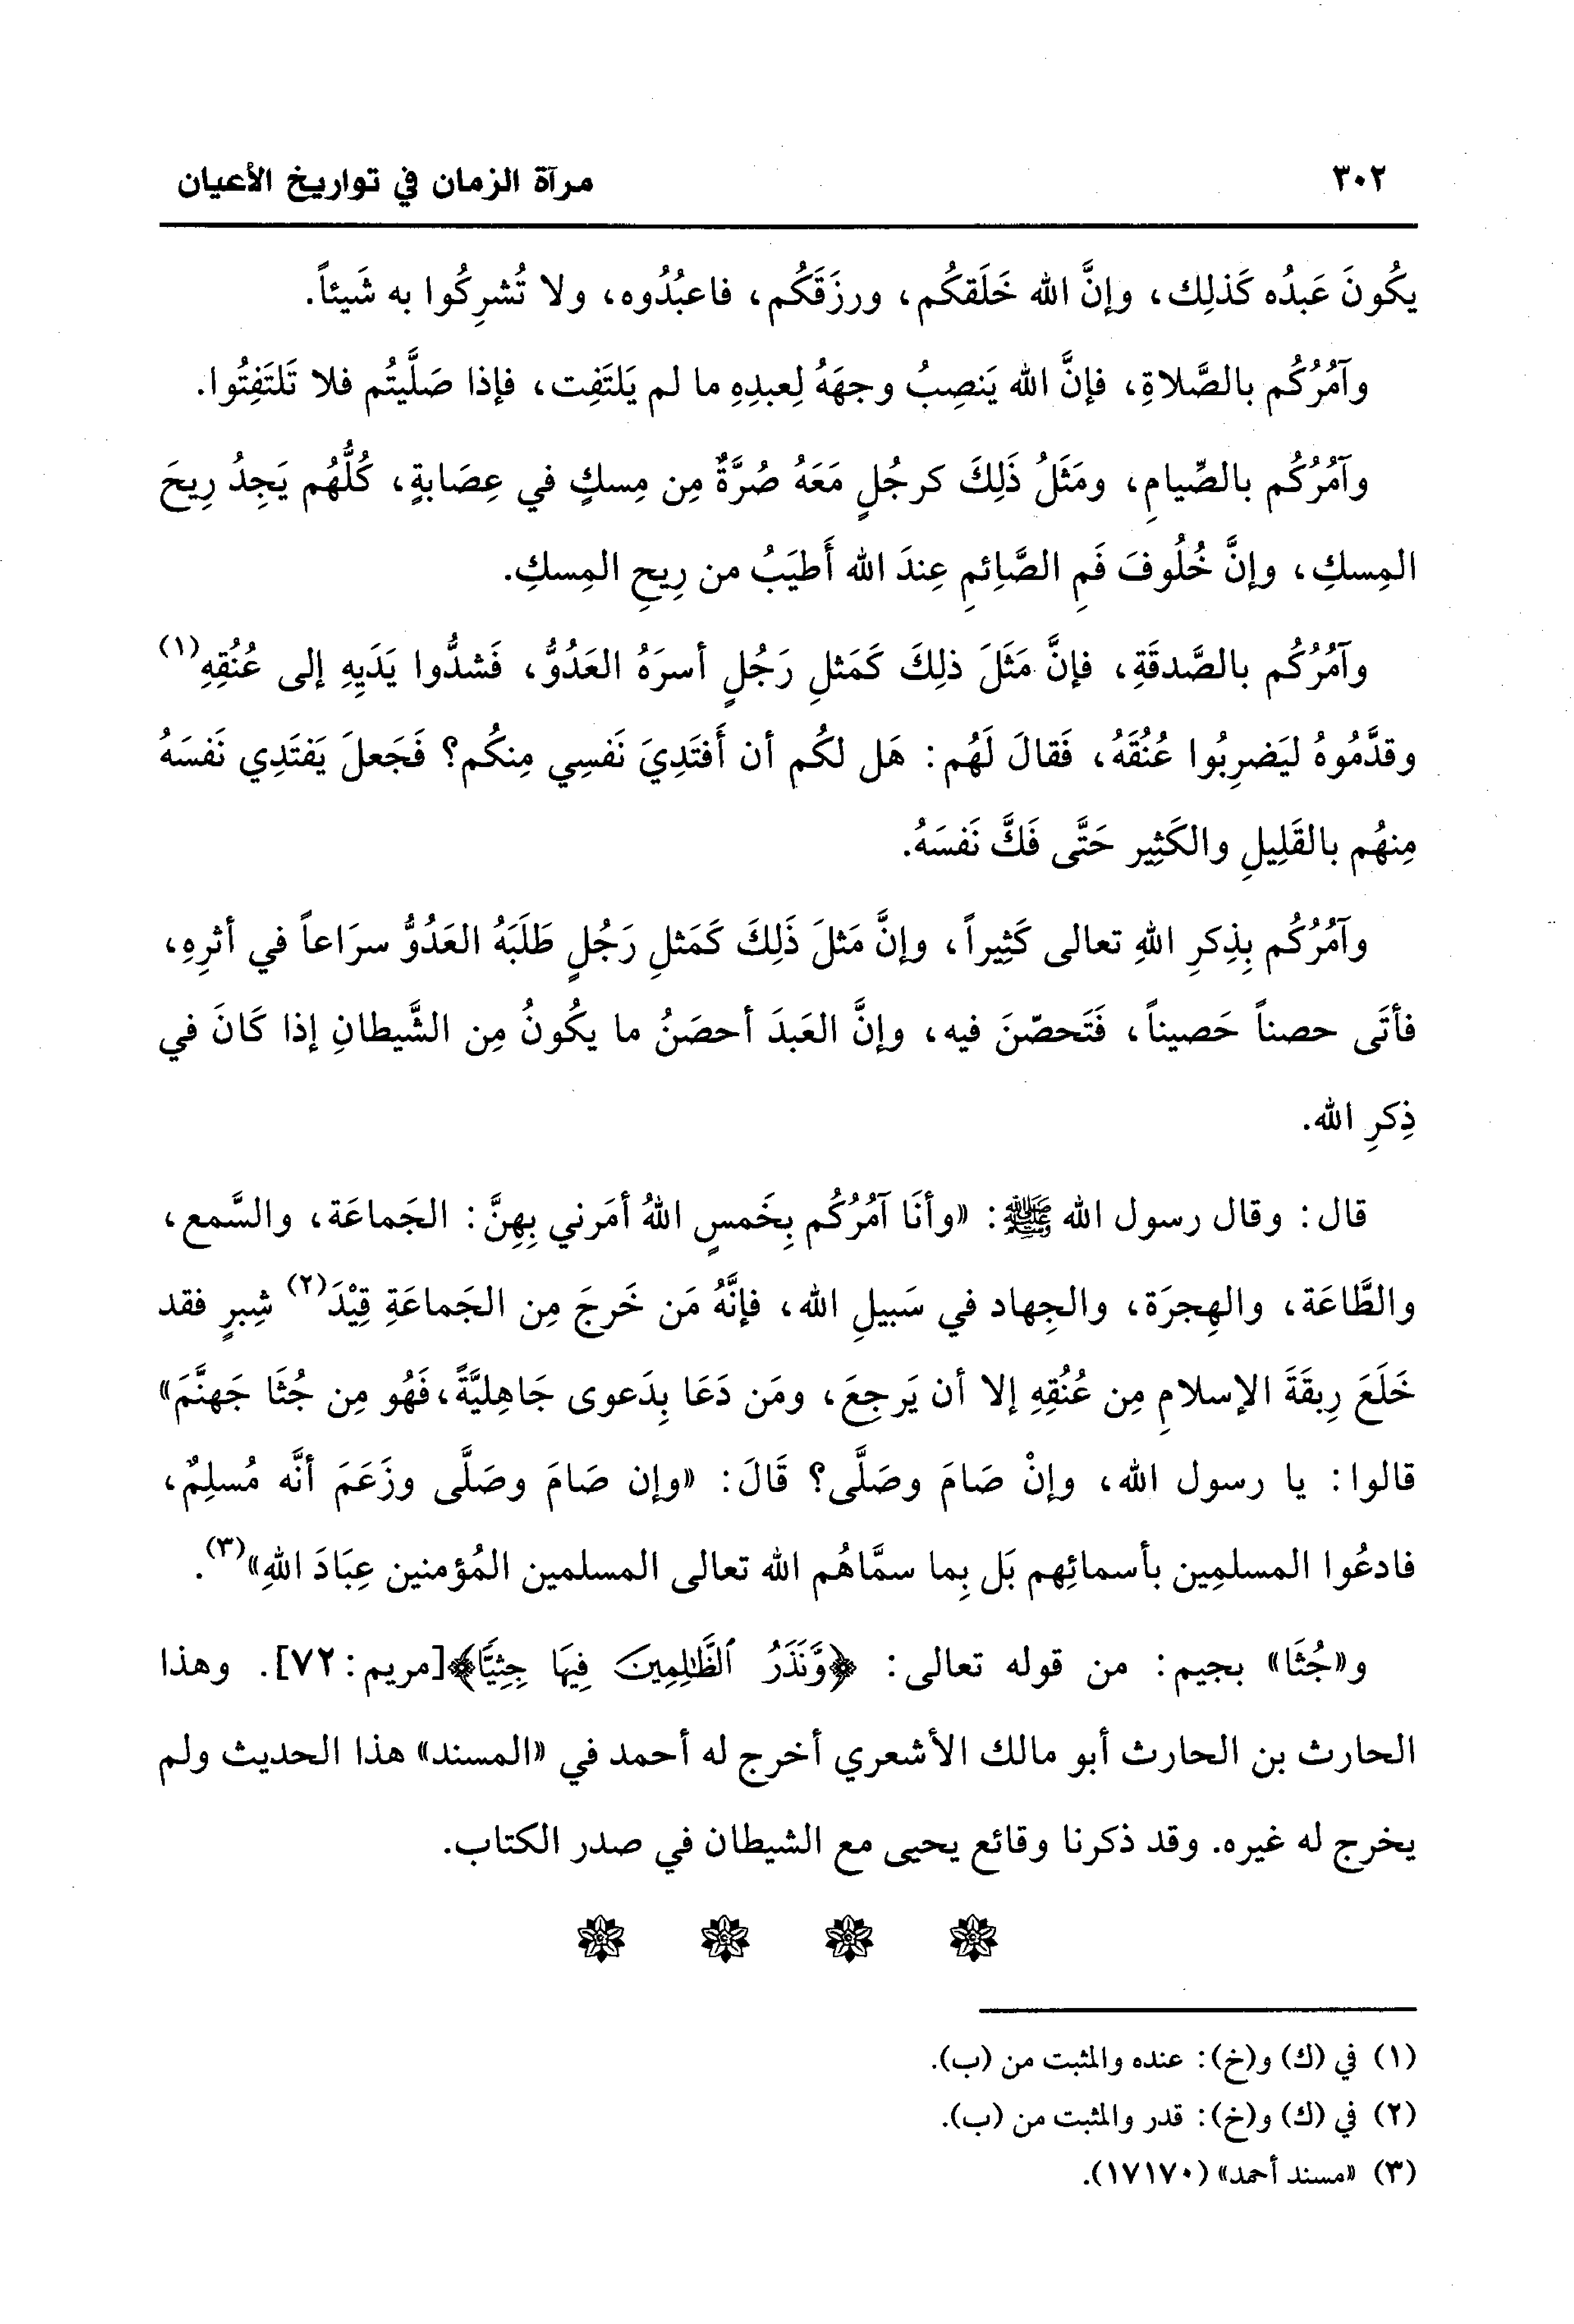 ٣٠٢
مرآة الزمان في تواريخ الأعيان
يكُونَ عَبدُه كَذلِك، وإنَّ الله خَلَقكُم، ورزَقَكُم، فاعبُدُوه، ولا تُشرِكُوا به شَيئاً.
وآمُرُكُم بالصَّلاةِ، فإنَّ الله يَنصِبُ وجهَهُ لِعبدِهِ ما لم يَلتَفِت، فإذا صَلَّيتُم فلا تَلتَفِتُوا.
وآمُرُكُم بالصِّيامِ، ومَثَلُ ذَلِكَ كرجُلٍ مَعَهُ صُرَّةٌ مِن مِسكٍ في عِصَابةٍ، كُلُّهُم يَجِدُ رِيحَ
المِسكِ، وإنَّ خُلُوفَ فَمِ الصَّائِمِ عِندَ الله أَطيَبُ من رِيحِ المِسكِ.
وآمُرُكُم بالصَّدقَةِ، فإنَّ مَثَلَ ذلِكَ كَمَثلِ رَجُلٍ أسرَهُ العَدُوُّ، فَشدُّوا يَدَيِهِ إلى عُنُقِهِ(١)
وقدَّمُوهُ ليَضرِبُوا عُنُقَهُ، فَقالَ لَهُم: هَل لكُم أن أَفتَدِيَ نَفسِي مِنكُم؟ فَجَعلَ يَفتَدِي نَفسَهُ
مِنهُم بالقَلِيلِ والكَثِير حَتَّى فَكَّ نَفسَهُ.
وآمُرُكُم بِذِكرِ اللهِ تعالى كَثِيراً، وإنَّ مَثلَ ذَلِكَ كَمَثلِ رَجُلٍ طَلَبَهُ العَدُوُّ سرَاعاً في أثرِهِ،
فأتَى حصناً حَصيناً، فَتَحصّنَ فيه، وإنَّ العَبدَ أحصَنُ ما يكُونُ مِن الشَّيطانِ إذا كَانَ في
ذِكرِ الله.
قال: وقال رسول الله ﷺ: «وأنَا آمُرُكُم بِخَمسٍ اللهُ أمَرني بِهِنَّ: الجَماعَة، والسَّمع،
والطَّاعَة، والهِجرَة، والجِهاد في سَبيلِ الله، فإنَّهُ مَن خَرجَ مِن الجَماعَةِ قِيْدَ(٢) شِبرٍ فقد
خَلَعَ رِبقَةَ الإسلامِ مِن عُنُقِهِ إلا أن يَرجِعَ، ومَن دَعَا بِدَعوى جَاهِليَّةً،فَهُو مِن جُثَا جَهنَّمَ»
قالوا: يا رسول الله، وإنْ صَامَ وصَلَّى؟ قَالَ: «وإن صَامَ وصَلَّى وزَعَمَ أنَّه مُسلِمٌ،
فادعُوا المسلمِين بأسمائِهم بَل بِما سمَّاهُم الله تعالى المسلمين المُؤمنين عِبَادَ اللهِ»(٣).
و«جُثَا» بجيم: من قوله تعالى: ﴿وَّنَذَرُ ٱلظَّٰلِمِينَ فِيهَا جِثِيًّا﴾[مريم: ٧٢]. وهذا
الحارث بن الحارث أبو مالك الأشعري أخرج له أحمد في «المسند» هذا الحديث ولم
يخرج له غيره. وقد ذكرنا وقائع يحيى مع الشيطان في صدر الكتاب.
(١) في (ك) و(خ): عنده والمثبت من (ب).
(٢) في (ك) و(خ): قدر والمثبت من (ب).
(٣) «مسند أحمد» (١٧١٧٠).